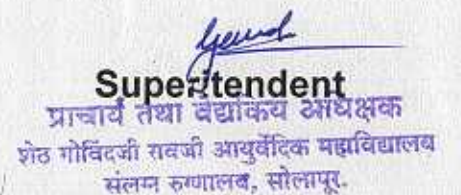 Superitendent
प्राचार्य तथा वैद्यकिय अधिक्षक
शेठ गोविंदजी रावजी आयुर्वेदिक महाविद्यालय
संलग्न रुग्णालय, सोलापूर.